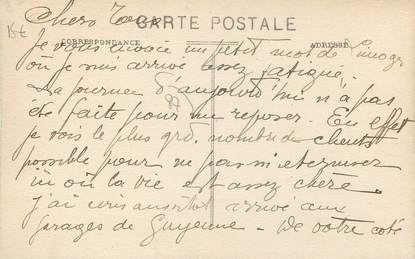 Chers Tous
15€
CARTE POSTALE
CORRESPONDANCE
ADRESSE
Je vous envoie un petit mot de Limoges
où je suis arrivé assez fatigué.
La journée d'aujourd'hui n'a pas
été faite pour me reposer. En effet
je vois le plus grd. nombre de clients
possible pour ne pas m'eterniser
ici où la vie est assez chère.
j'ai écris aussitot arrivé aux
Garages de Guyenne - De votre coté